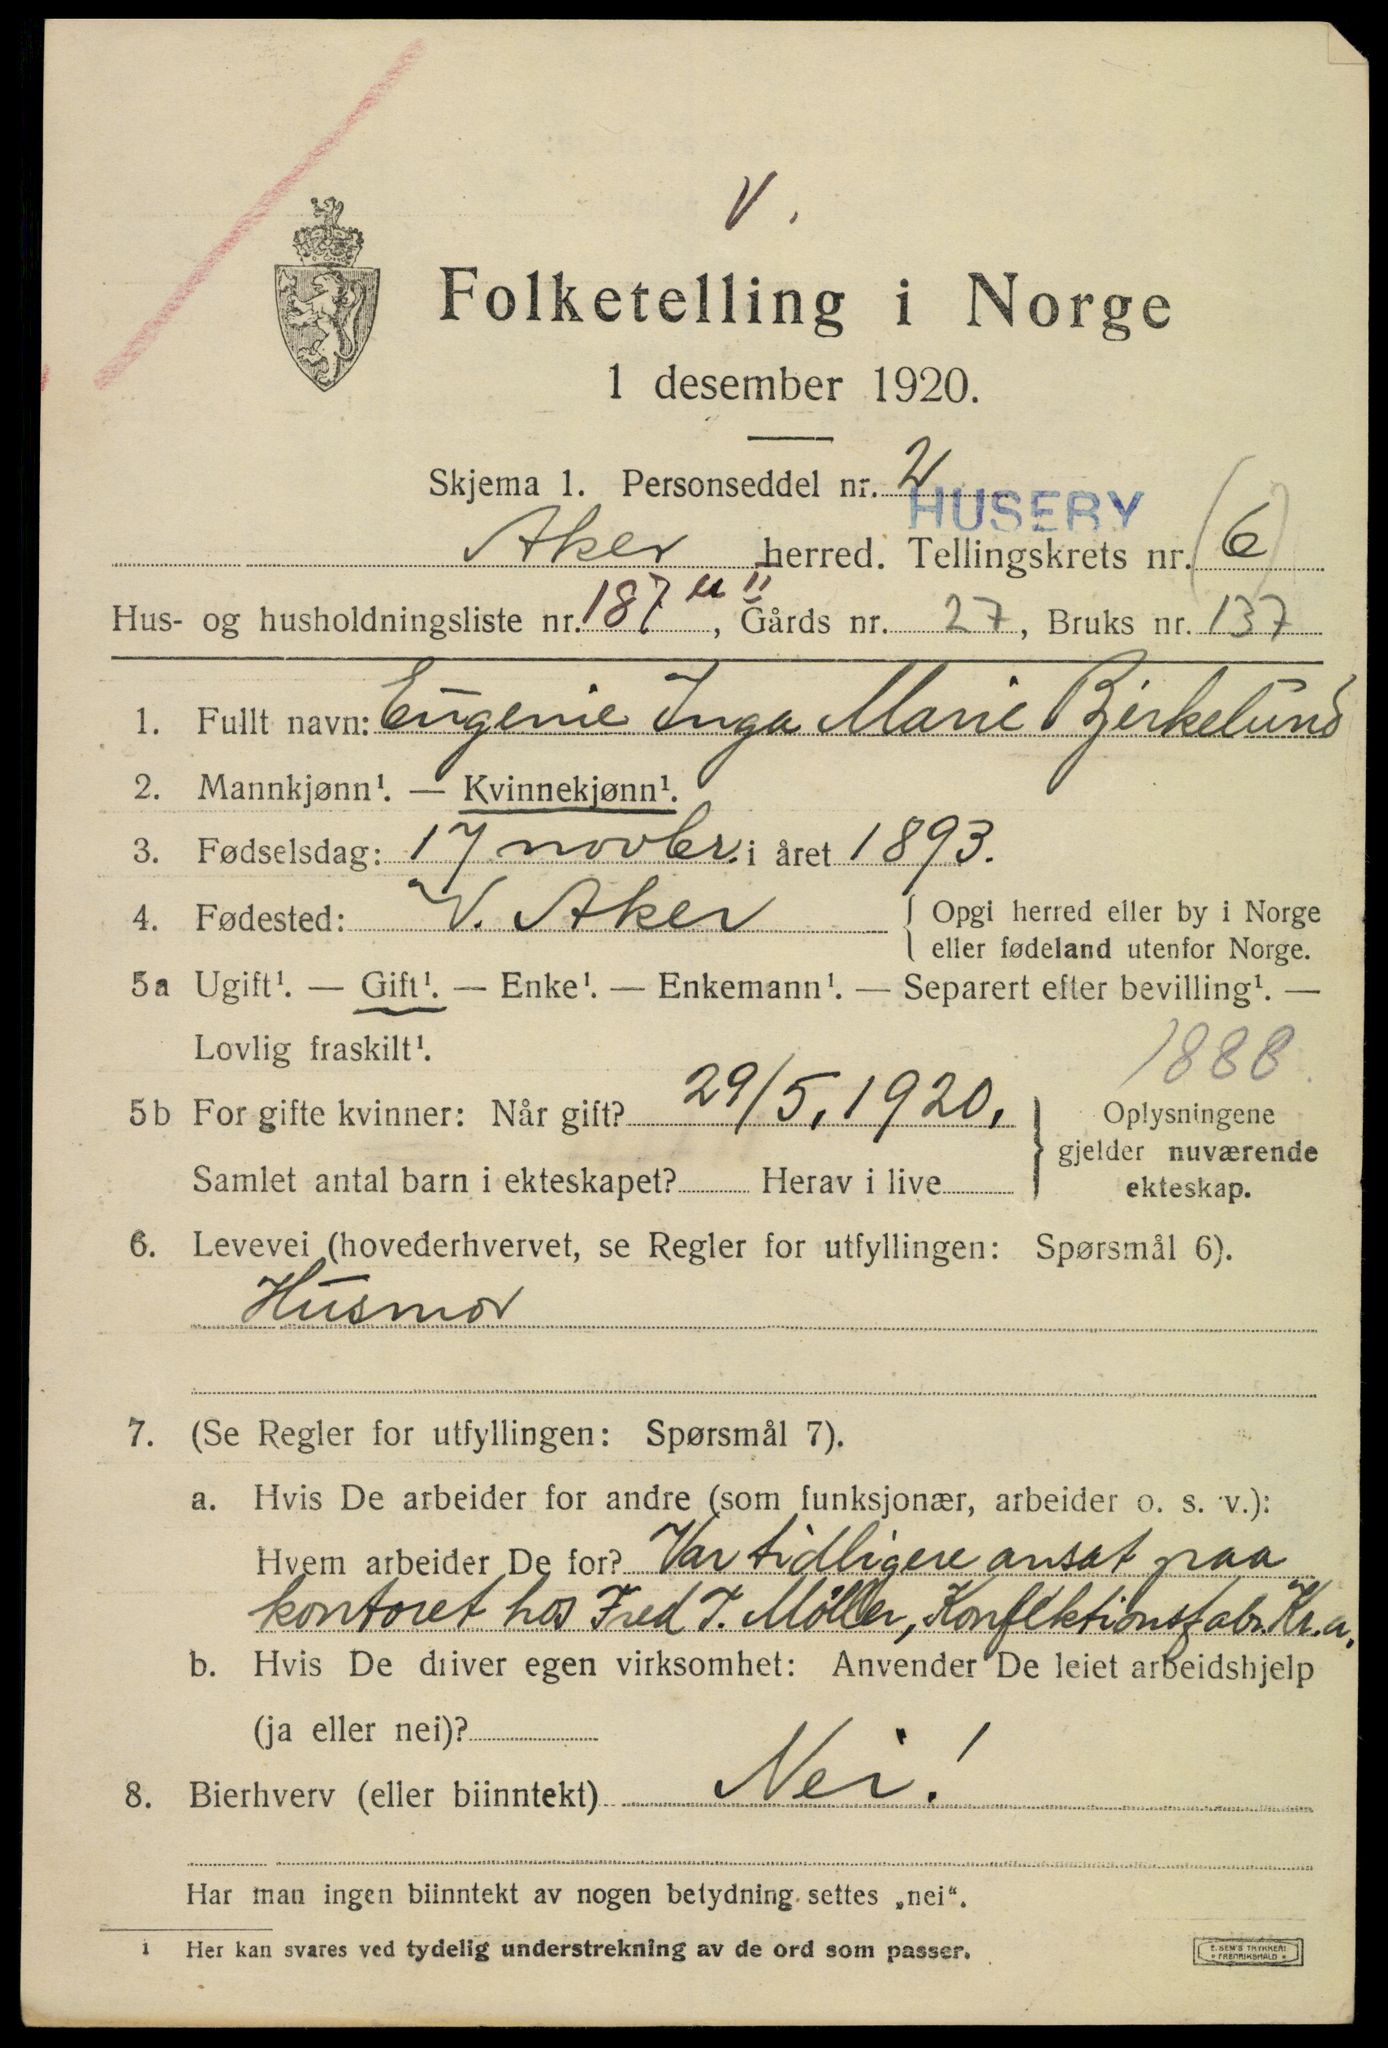 V.
Folketelling i Norge
1 desember 1920.
Skjema 1. Personseddel nr. 2
HUSEBY
Aker herred. Tellingskrets nr. (6)
Hus- og husholdningsliste nr. 187 u II, Gårds nr. 27, Bruks nr. 137
1. Fullt navn: Eugenie Inga Marie Bjerkelund
2. Mannkjønn¹. — Kvinnekjønn¹.
3. Fødselsdag: 17 novbr. i året 1893.
4. Fødested: V. Aker { Opgi herred eller by i Norge
eller fødeland utenfor Norge.
5a Ugift¹. — Gift¹. — Enke¹. — Enkemann¹. — Separert efter bevilling¹. —
Lovlig fraskilt¹.
1888
5b For gifte kvinner: Når gift? 29/5. 1920. } Oplysningene
gjelder nuværende
Samlet antal barn i ekteskapet? Herav i live ekteskap.
6. Levevei (hovederhvervet, se Regler for utfyllingen: Spørsmål 6).
Husmor
7. (Se Regler for utfyllingen: Spørsmål 7).
a. Hvis De arbeider for andre (som funksjonær, arbeider o. s. v.):
Hvem arbeider De for? Var tidligere ansat paa
kontoret hos Fred T. Møller, Konfektionsfabr. Kr.a.
b. Hvis De driver egen virksomhet: Anvender De leiet arbeidshjelp
(ja eller nei)?
8. Bierhverv (eller biinntekt) Nei!
Har man ingen biinntekt av nogen betydning settes „nei“.
1 Her kan svares ved tydelig understrekning av de ord som passer.
E. SEM'S TRYKKERI
* FREDRIKSHALD *